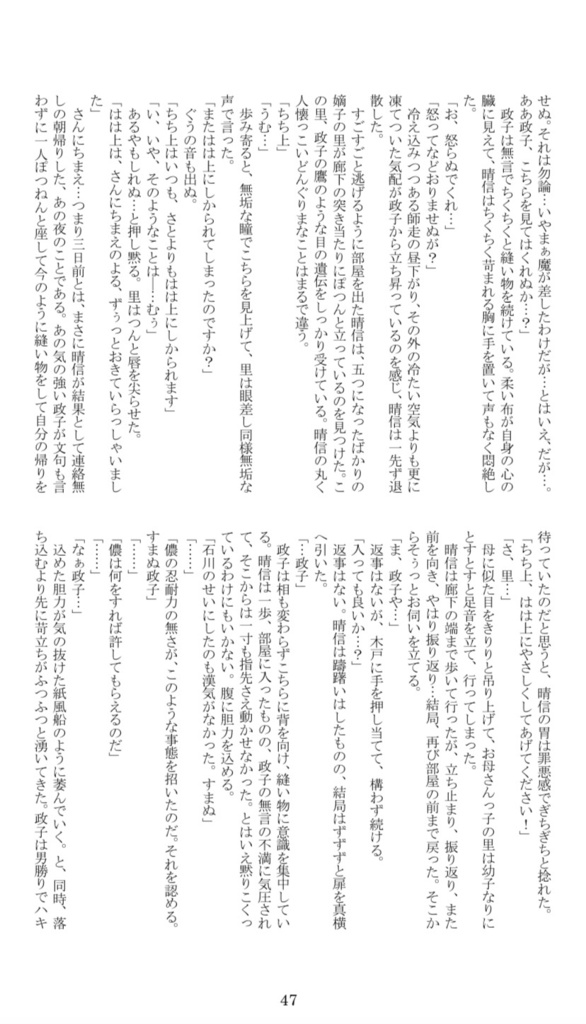 せぬ。それは勿論…いやまぁ魔が差したわけだが…とはいえ、だが…。
ああ政子、こちらを見てはくれぬか…？」
　政子は無言でちくちくと縫い物を続けている。柔い布が自身の心の
臓に見えて、晴信はちくちく苛まれる胸に手を置いて声もなく悶絶し
た。
「お、怒らぬでくれ…」
「怒ってなどおりませぬが？」
　冷え込みつつある師走の昼下がり、その外の冷たい空気よりも更に
凍てついた気配が政子から立ち昇っているのを感じ、晴信は一先ず退
散した。
　すごすごと逃げるように部屋を出た晴信は、五つになったばかりの
嫡子の里が廊下の突き当たりにぽつんと立っているのを見つけた。こ
の里、政子の鷹のような目の遺伝をしっかり受けている。晴信の丸く
人懐っこいどんぐりまなことはまるで違う。
「ちち上」
「うむ…」
　歩み寄ると、無垢な瞳でこちらを見上げて、里は眼差し同様無垢な
声で言った。
「またはは上にしかられてしまったのですか？」
　ぐうの音も出ぬ。
「ちち上はいつも、さとよりもはは上にしかられます」
「い、いや、そのようなことは――…むぅ」
　あるやもしれぬ…と押し黙る。里はつんと唇を尖らせた。
「はは上は、さんにちまえのよる、ずぅっとおきていらっしゃいまし
た」
　さんにちまえ…つまり三日前とは、まさに晴信が結果として連絡無
しの朝帰りした、あの夜のことである。あの気の強い政子が文句も言
わずに一人ぽつねんと座して今のように縫い物をして自分の帰りを
待っていたのだと思うと、晴信の胃は罪悪感でぎちぎちと捻れた。
「ちち上、はは上にやさしくしてあげてください！」
「さ、里…」
　母に似た目をきりりと吊り上げて、お母さんっ子の里は幼子なりに
とすとすと足音を立て、行ってしまった。
　晴信は廊下の端まで歩いて行ったが、立ち止まり、振り返り、また
前を向き、やはり振り返り…結局、再び部屋の前まで戻った。そこか
らそぅっとお伺いを立てる。
「ま、政子や…」
　返事はないが、木戸に手を押し当てて、構わず続ける。
「入っても良いか…？」
　返事はない。晴信は躊躇いはしたものの、結局はずずずと扉を真横
へ引いた。
「…政子」
　政子は相も変わらずこちらに背を向け、縫い物に意識を集中してい
る。晴信は一歩、部屋に入ったものの、政子の無言の不満に気圧され
て、そこからは一寸も指先さえ動かせなかった。とはいえ黙りこくっ
ているわけにもいかない。腹に胆力を込める。
「石川のせいにしたのも漢気がなかった。すまぬ」
「……」
「儂の忍耐力の無さが、このような事態を招いたのだ。それを認める。
すまぬ政子」
「……」
「儂は何をすれば許してもらえるのだ」
「……」
「なぁ政子…」
　込めた胆力が気の抜けた紙風船のように萎んでいく。と、同時、落
ち込むより先に苛立ちがふつふつと湧いてきた。政子は男勝りでハキ
47